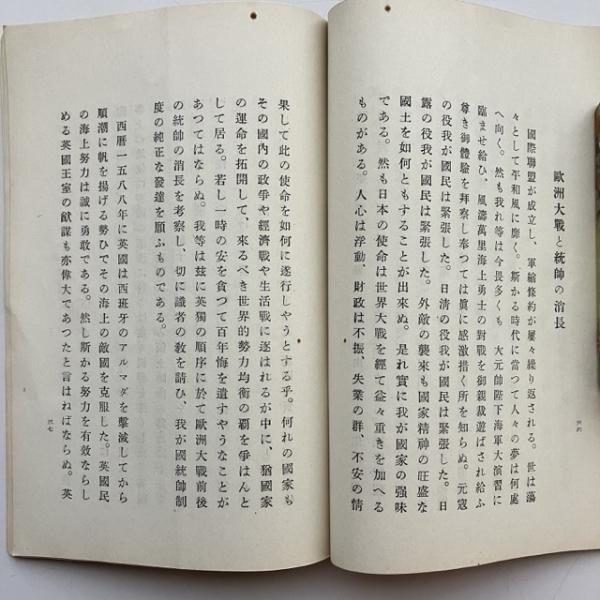 歐洲大戰と統帥の消長
國際聯盟が成立し、軍縮條約が屢々繰り返される。世は蕩
々として平和風に靡く。斯かる時代に當つて人々の夢は何處
へ向く。然も我れ等は今畏多くも　大元帥陛下海軍大演習に
臨ませ給ひ、風濤萬里海上勇士の對戰を御親裁遊ばされ給ふ
尊き御體驗を拜察し奉つては眞に感激措く所を知らぬ。元寇
の役我が國民は緊張した。日清の役我が國民は緊張した。日
露の役我が國民は緊張した。外敵の襲來も國家精神の旺盛な
國土を如何ともすることが出來ぬ。是れ實に我が國家の强味
である。然も日本の使命は世界大戰を經て益々重きを加へる
ものがある。人心は浮動、財政は不振、失業の群、不安の情
果して此の使命を如何に遂行しやうとする乎。何れの國家も
その國內の政爭や經濟戰や生活戰に逐はれるが中に、猶國家
の運命を拓開して、來るべき世界的勢力均衡の覇を爭はんと
して居る。若し一時の安を貪つて百年悔を遺すやうなことが
あつてはならぬ。我等は玆に英獨の順序に於て歐洲大戰前後
の統帥の消長を考察し、切に識者の敎を請ひ、我が國統帥制
度の純正な發達を願ふものである。
西曆一五八八年に英國は西班牙のアルマダを擊滅してから
順潮に帆を揚げる勢ひでその海上の敵國を克服した。英國民
の海上努力は誠に勇敢である。然し斯かる努力を有效ならし
める英國王室の猷謀も亦偉大であつたと言はねばならぬ。英
六七